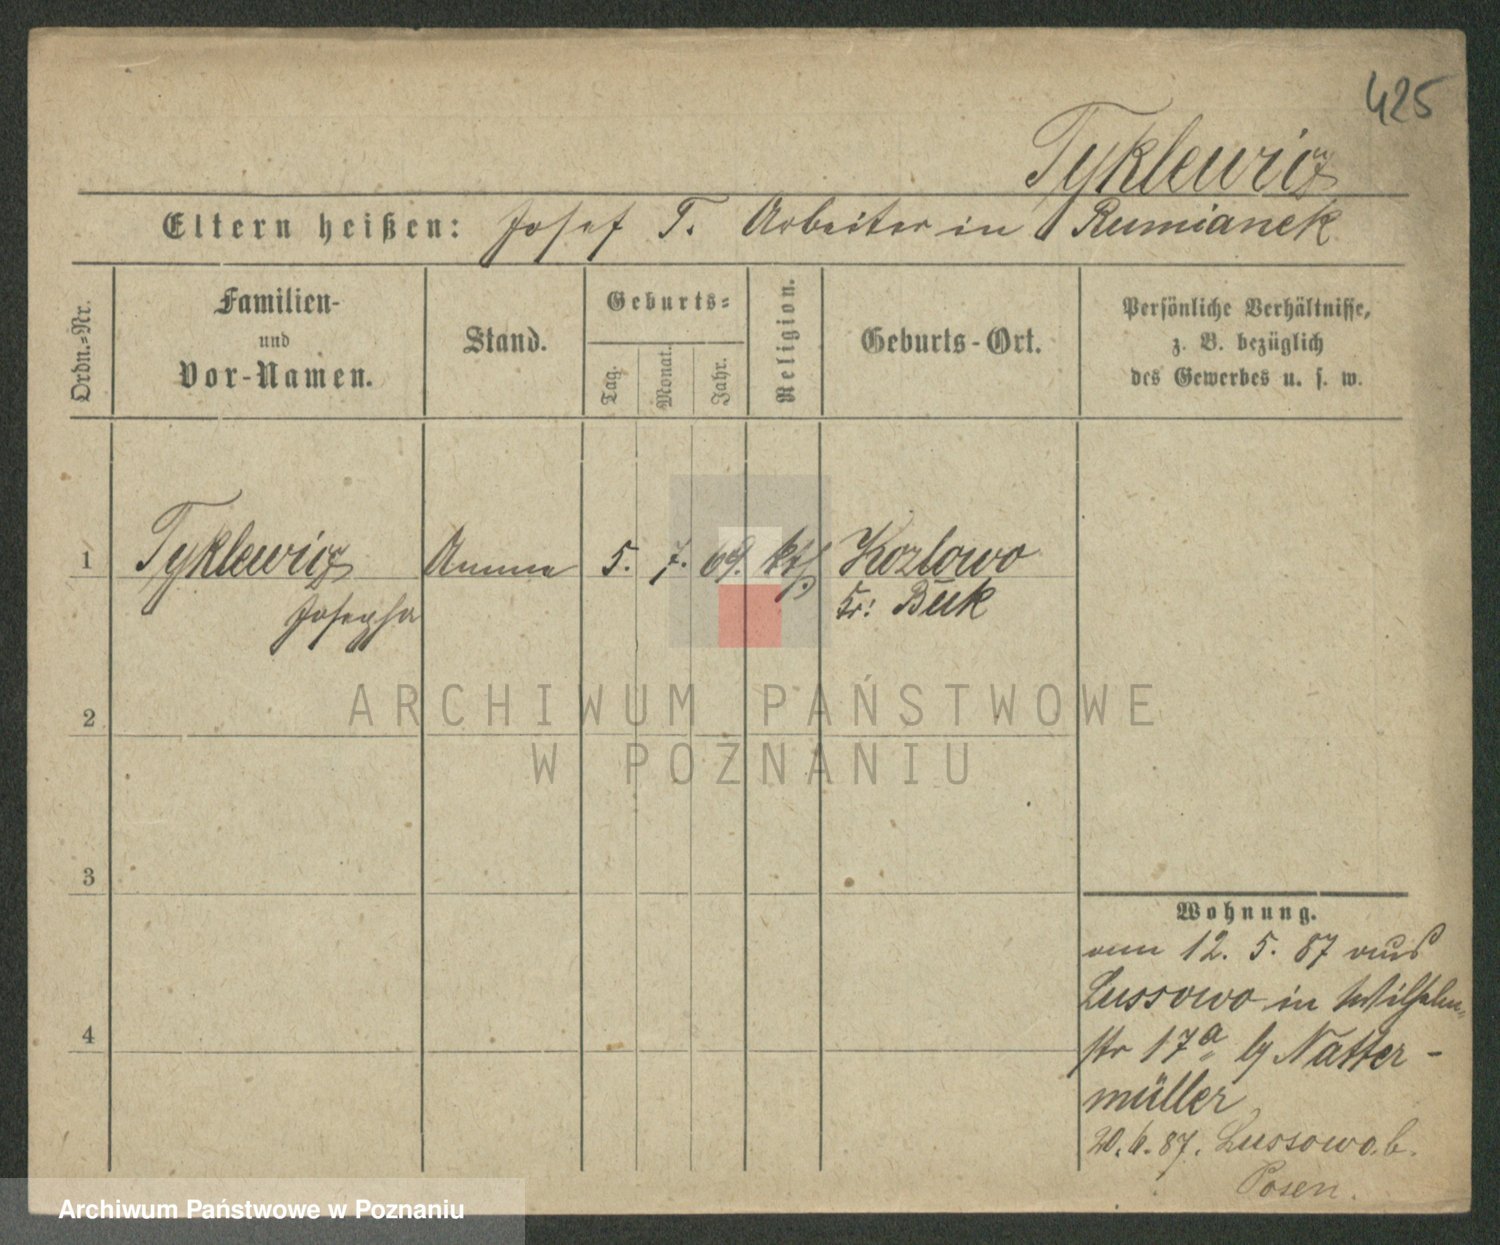 425
Tyklewicz
Eltern heißen: Josef T. Arbeiter in Rumianek
Ordn.-Nr.
Familien-
und
Vor-Namen.
Stand.
Geburts-
Tag.
Monat.
Jahr.
Religion.
Geburts-Ort.
Persönliche Verhältnisse,
z. B. bezüglich
des Gewerbes u. s. w.
1 Tyklewicz Amme 5. 7. 69. kth Kozlowo
Josepha Kr: Buk
2
3
4
Wohnung.
am 12. 5. 87 aus
Lussowo in Wilhelm-
str 17a by Natter-
müller
20. 6. 87. Lussowo b.
Posen.
ARCHIWUM PAŃSTWOWE
W POZNANIU
Archiwum Państwowe w Poznaniu